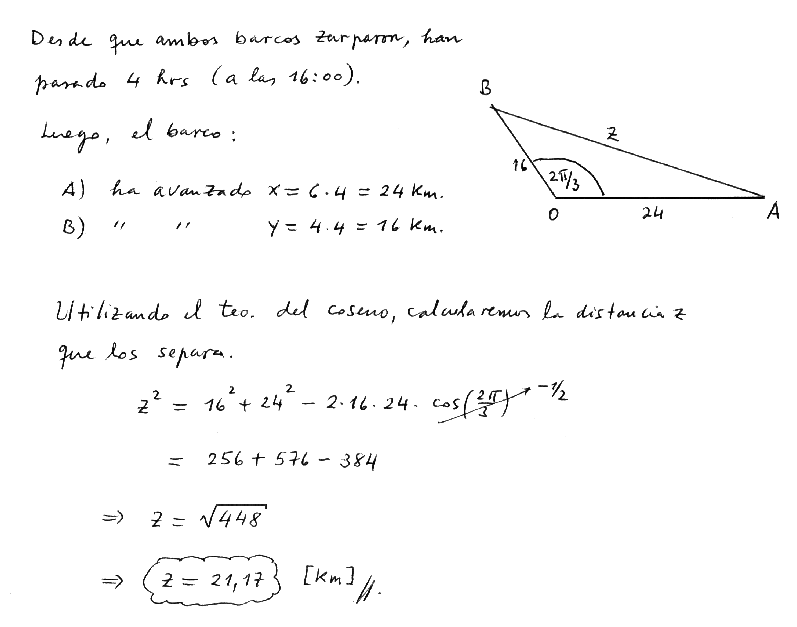 Desde que ambos barcos zarparon, han
pasado 4 hrs (a las 16:00).
Luego, el barco:
A) ha avanzado x = 6·4 = 24 km.
B) " " y = 4·4 = 16 km.
B
z
16
2π/3
O
24
A
Utilizando el teo. del coseno, calcularemos la distancia z
que los separa.
z² = 16² + 24² - 2·16·24· cos(2π/3) -1/2
= 256 + 576 - 384
⇒ z = √448
⇒ z = 21,17 [km] //.